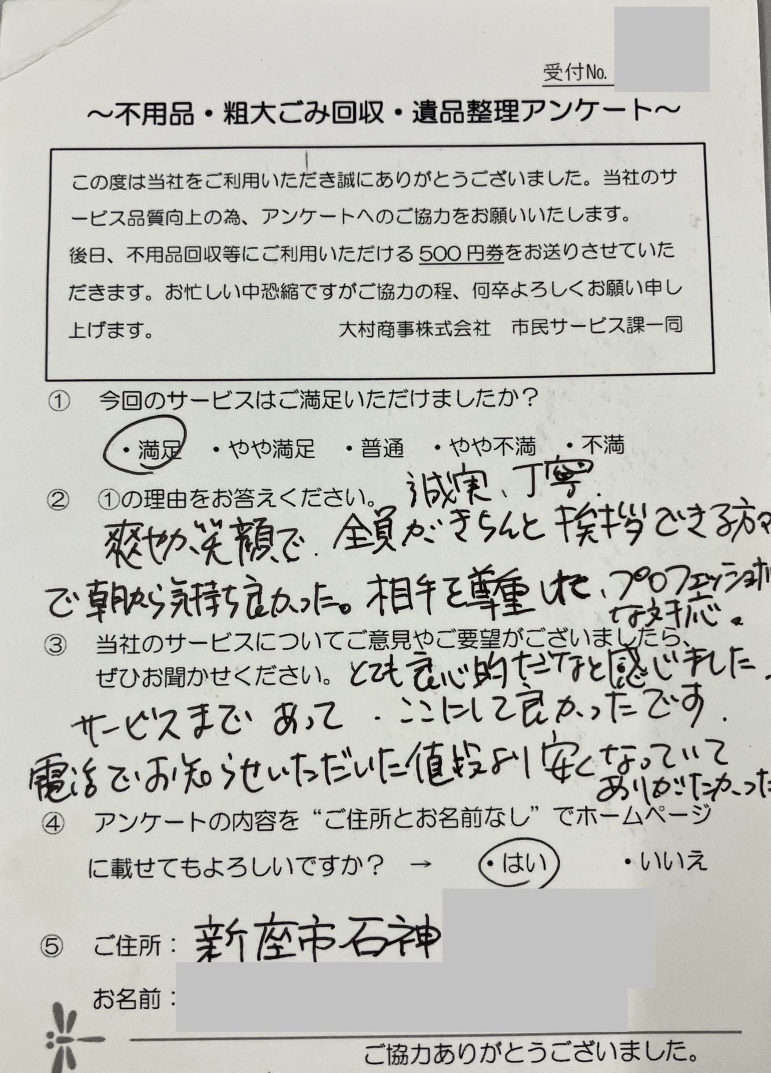 受付No.
～不用品・粗大ごみ回収・遺品整理アンケート～
この度は当社をご利用いただき誠にありがとうございました。当社のサ
ービス品質向上の為、アンケートへのご協力をお願いいたします。
後日、不用品回収等にご利用いただける500円券をお送りさせていた
だきます。お忙しい中恐縮ですがご協力の程、何卒よろしくお願い申し
上げます。 大村商事株式会社 市民サービス課一同
① 今回のサービスはご満足いただけましたか？
・満足 ・やや満足 ・普通 ・やや不満 ・不満
② ①の理由をお答えください。 誠実、丁寧、
爽やか笑顔で、全員がきちんと挨拶できる方々
で朝から気持ち良かった。相手を尊重した、プロフェッショナル
な対応。
③ 当社のサービスについてご意見やご要望がございましたら、
ぜひお聞かせください。とても良心的だなと感じました、
サービスまであって、ここにして良かったです。
電話でお知らせいただいた値段より安くなっていて
ありがたかった
④ アンケートの内容を“ご住所とお名前なし”でホームページ
に載せてもよろしいですか？ → ・はい ・いいえ
⑤ ご住所：新座市石神
お名前：
ご協力ありがとうございました。